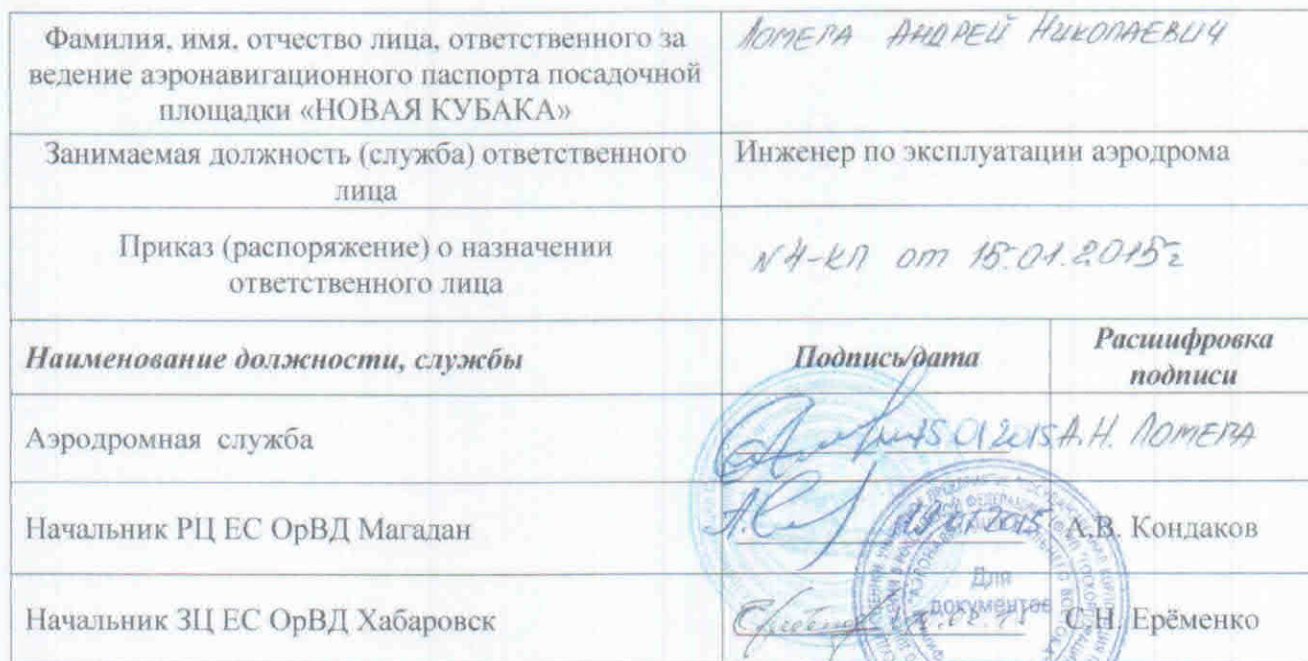 Фамилия, имя, отчество лица, ответственного за
ведение аэронавигационного паспорта посадочной
площадки «НОВАЯ КУБАКА»
ЛОМЕГА АНДРЕЙ НИКОЛАЕВИЧ
Занимаемая должность (служба) ответственного
лица
Инженер по эксплуатации аэродрома
Приказ (распоряжение) о назначении
ответственного лица
№4-КП от 15.01.2015г
Наименование должности, службы
Подпись/дата
Расшифровка
подписи
Аэродромная служба
15 01 2015 А.Н. ЛОМЕГА
Начальник РЦ ЕС ОрВД Магадан
2015 А.В. Кондаков
Для
документов
Начальник ЗЦ ЕС ОрВД Хабаровск
С.Н. Ерёменко